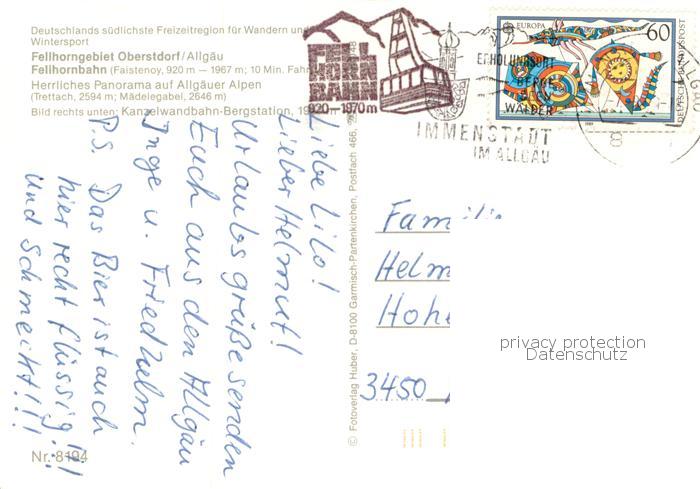 Deutschlands südlichste Freizeitregion für Wandern und
Wintersport
Fellhorngebiet Oberstdorf/Allgäu
Fellhornbahn (Faistenoy, 920 m — 1967 m; 10 Min. Fah
Herrliches Panorama auf Allgäuer Alpen
(Trettach, 2594 m; Mädelegabel, 2646 m)
Bild rechts unten: Kanzelwandbahn-Bergstation, 19
FELL
HORN
BAHN
920 - 1970 m
ERHOLUNGSORT
BERGE
WÄLDER
IMMENSTADT
IM ALLGÄU
EUROPA
60
DEUTSCHE BUNDESPOST
Liebe Lilo!
Lieber Helmut!
Urlaubsgrüße senden
Euch aus den Allgäu
Inge u. Friedhelm.
P.S. Das Bier ist auch
hier recht flüssig!!!
und schmeckt!!!
© Fotoverlag Huber, D-8100 Garmisch-Partenkirchen, Postfach 466,
Familie
Helm
Hoh
3450
privacy protection
Datenschutz
Nr. 8194